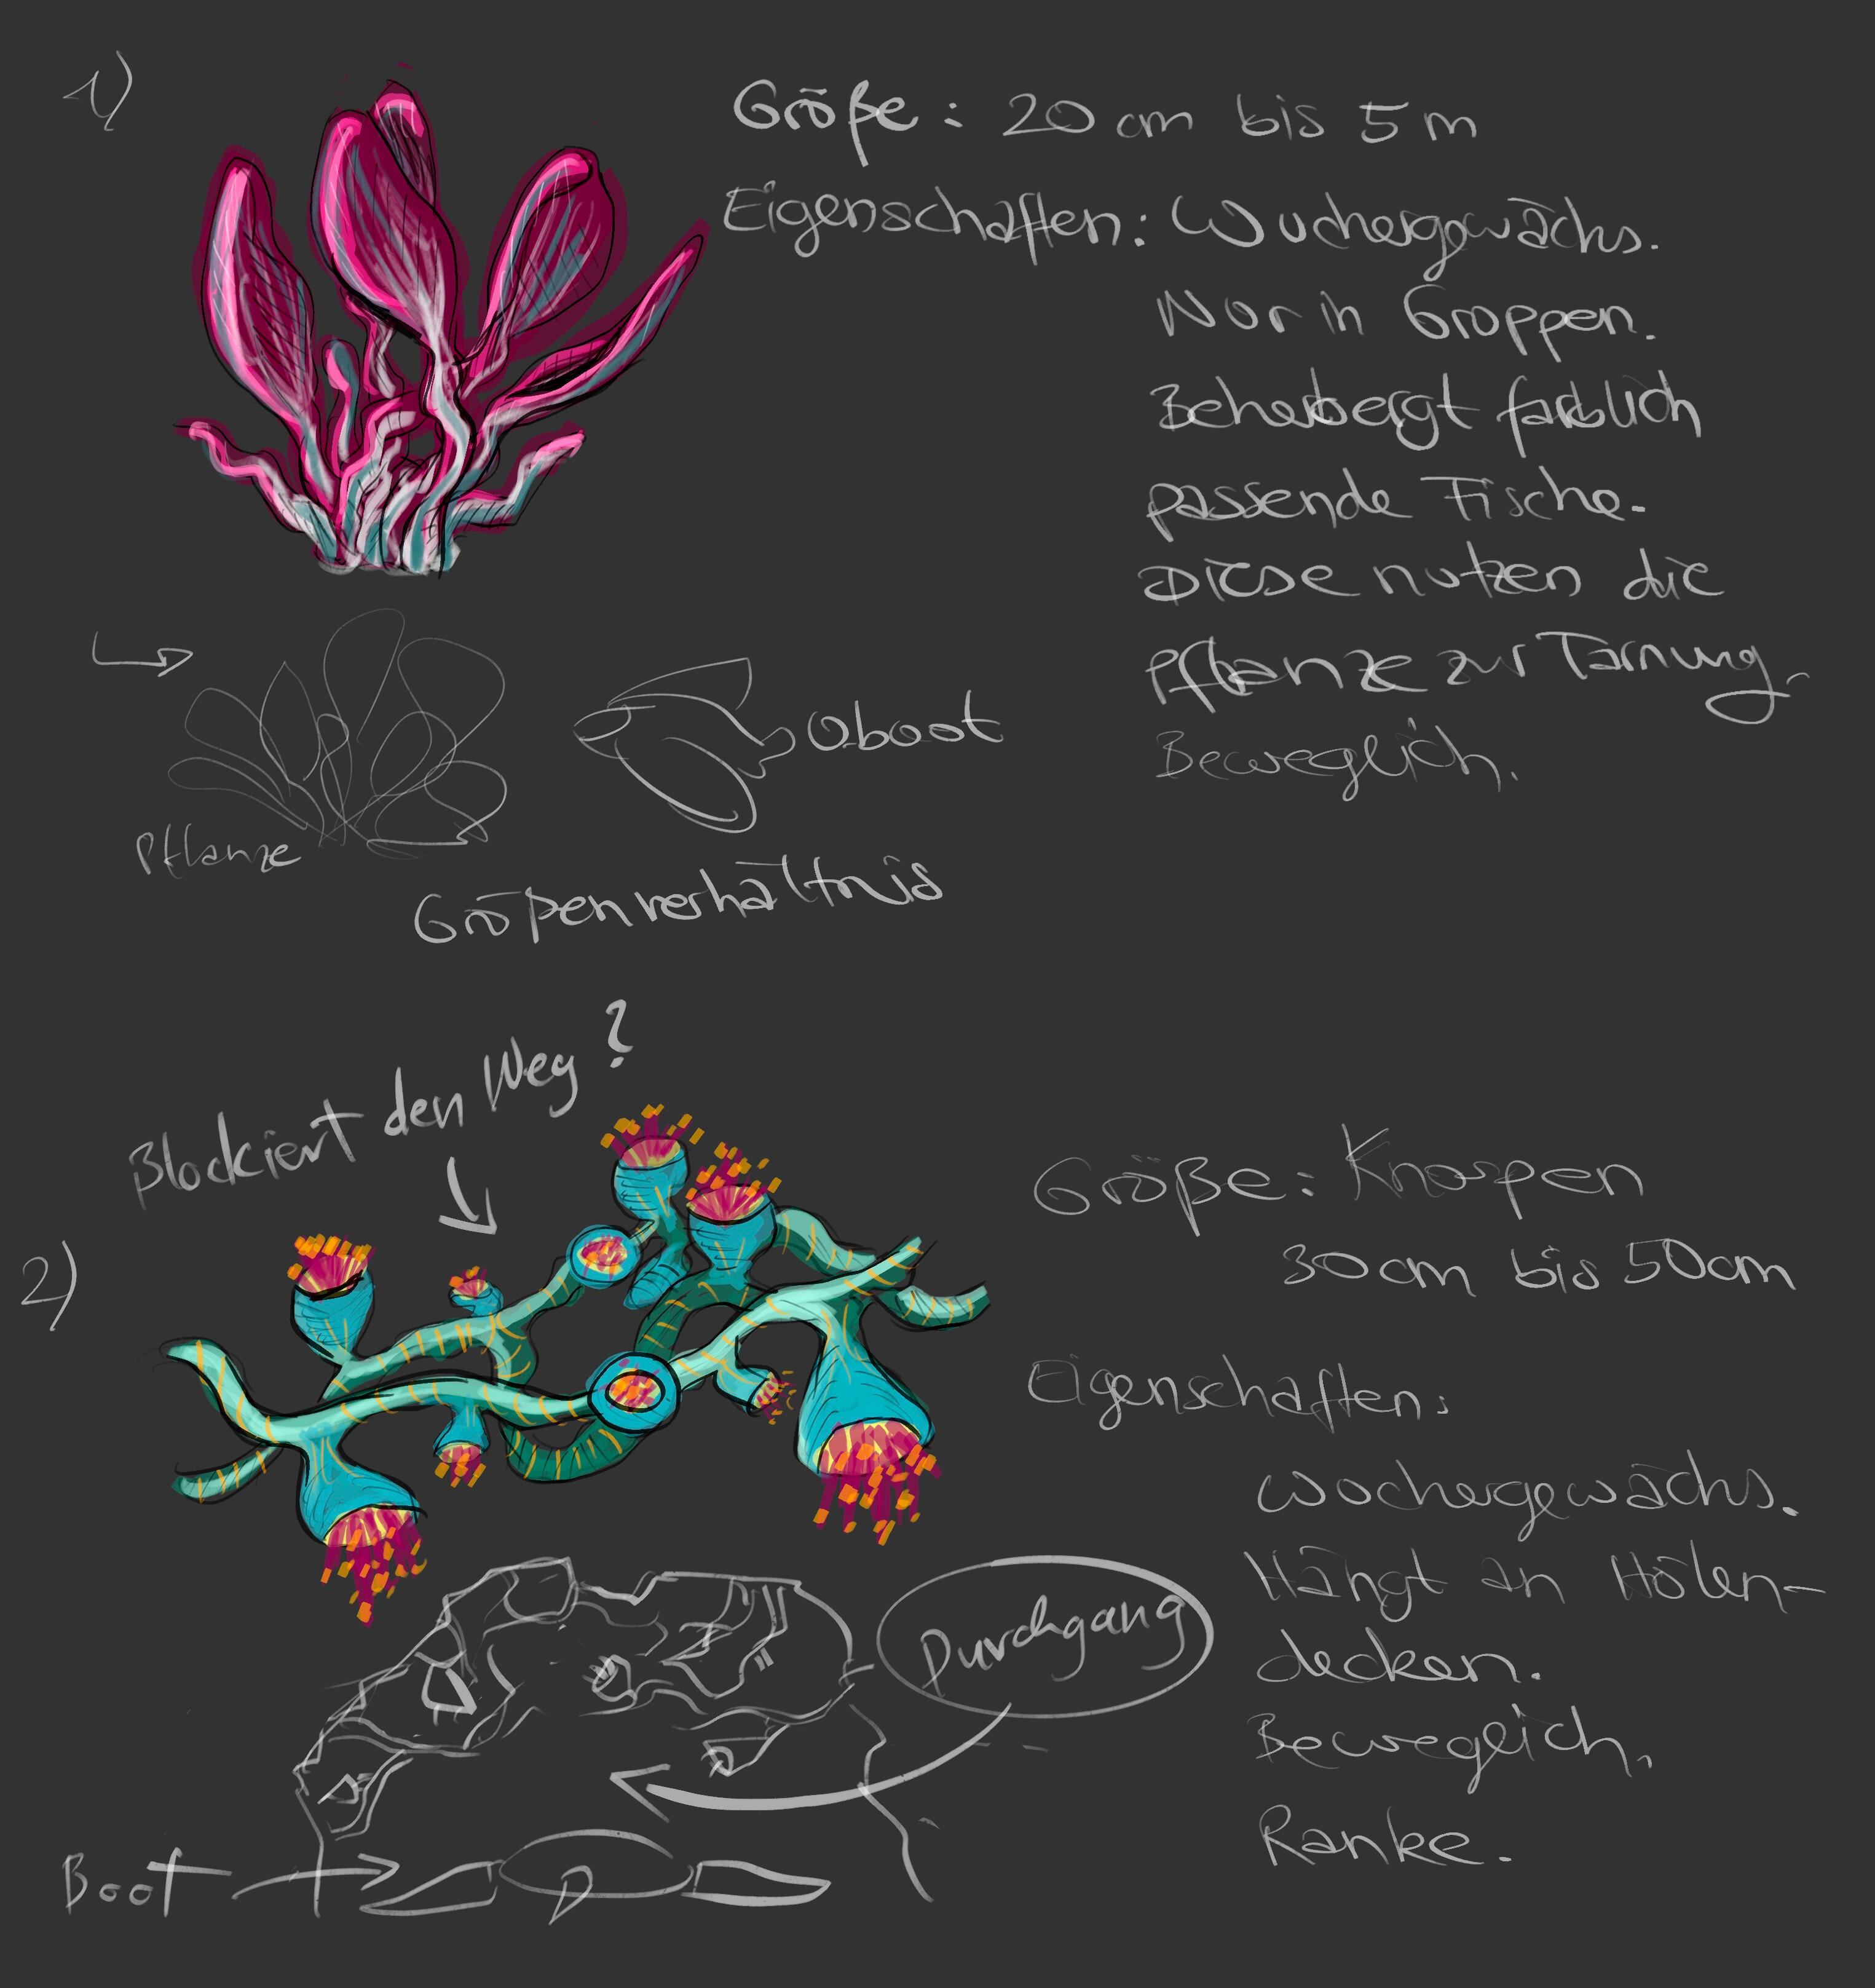 1)
Größe: 20 cm bis 5 m
Eigenschaften: Wuchergewächs.
Nur in Gruppen.
Beherbergt farblich
passende Fische.
Diese nutzen die
Pflanze zur Tarnung.
Beweglich.
U-boot
Pflanze
Größenverhältnis
Blockiert den Weg?
2)
Größe: Knospen
30cm bis 50cm
Eigenschaften:
Wuchergewächs.
Hängt an Hölen-
decken.
Beweglich.
Ranke.
Durchgang
Boot